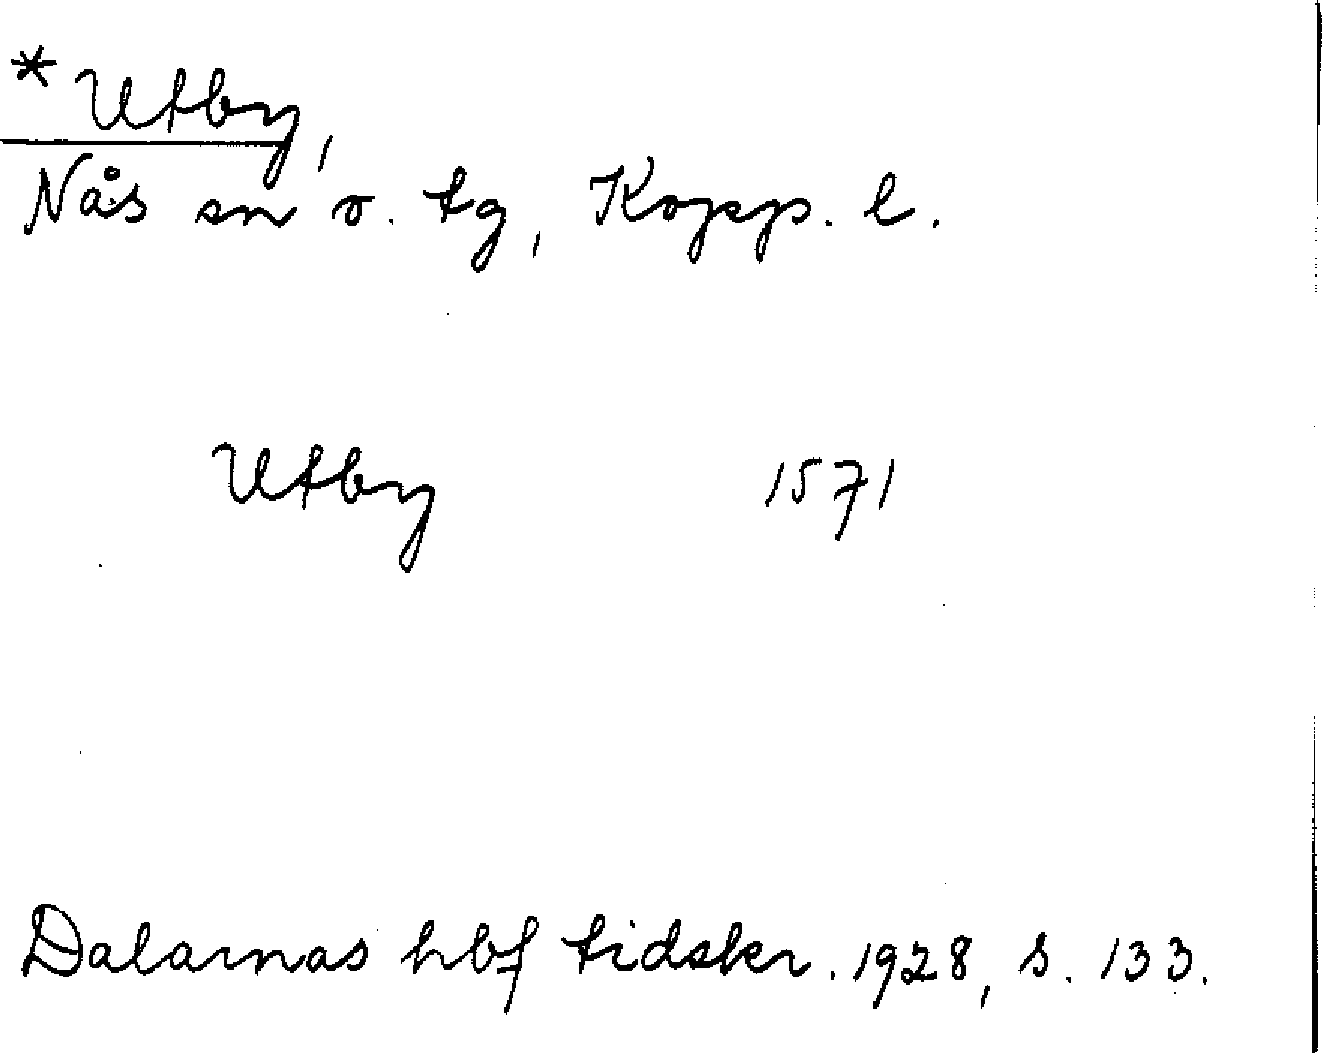 * Utby,
Nås sn o. tg, Kopp. l.
Utby 1571
Dalarnas hbf tidskr. 1928, s. 133.